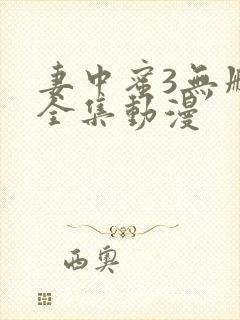 妻中蜜3無刪
全集動漫
西奧